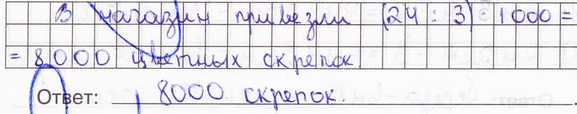 В магазин привезли (24 : 3) · 1000 =
= 8000 цветных скрепок.
Ответ: 8000 скрепок.